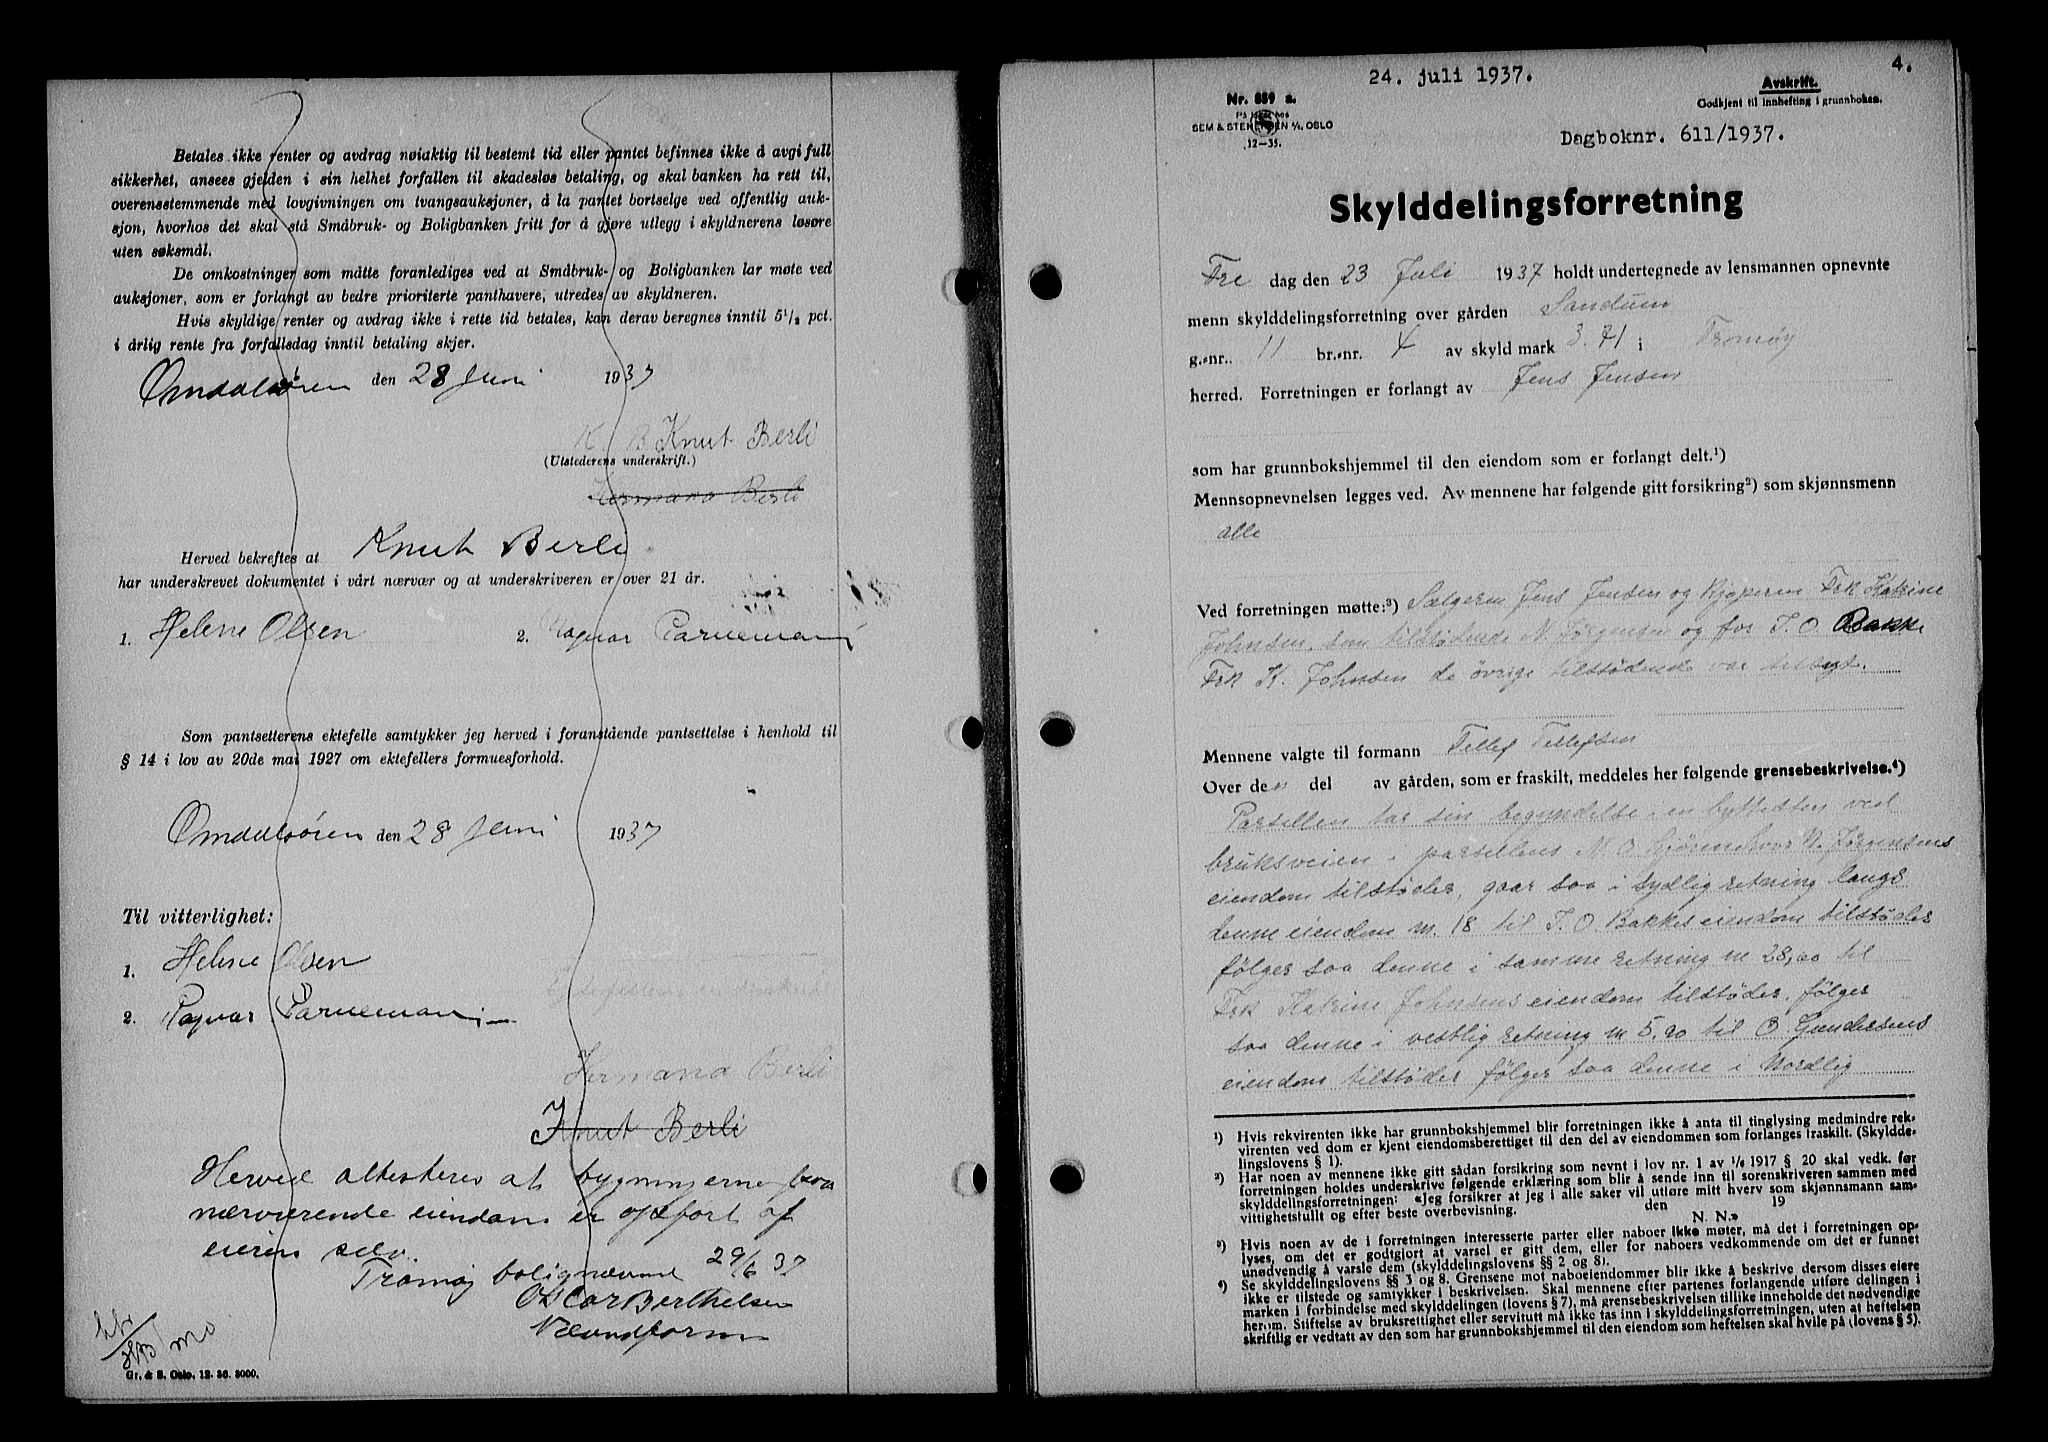 Betales ikke renter og avdrag nøiaktig til bestemt tid eller pantet befinnes ikke å avgi full
sikkerhet, ansees gjelden i sin helhet forfallen til skadesløs betaling, og skal banken ha rett til,
overensstemmende med lovgivningen om tvangsauksjoner, å la pantet bortselge ved offentlig auk-
sjon, hvorhos det skal stå Småbruk- og Boligbanken fritt for å gjøre utlegg i skyldnerens løsøre
uten søksmål.
De omkostninger som måtte foranlediges ved at Småbruk- og Boligbanken lar møte ved
auksjoner, som er forlangt av bedre prioriterte panthavere, utredes av skyldneren.
Hvis skyldige renter og avdrag ikke i rette tid betales, kan derav beregnes inntil 5½ pct.
i årlig rente fra forfallsdag inntil betaling skjer.
Omdalsören den 28 Juni 1937
K. B Knut Berli
(Utstederens underskrift.)
Hermana Berli
Herved bekreftes at Knut Berli
har underskrevet dokumentet i vårt nærvær og at underskriveren er over 21 år.
1. Helene Olsen 2. Ragnar
Som pantsetterens ektefelle samtykker jeg herved i foranstående pantsettelse i henhold til
§ 14 i lov av 20de mai 1927 om ektefellers formuesforhold.
Omdalsören den 28 Juni 1937
Til vitterlighet:
1. Helene Olsen
2. Ragnar
Hermana Berli
Knut Berli
Herved attesteres at bygningerne paa
nærværende eiendom er opfört af
eieren selv.
Tromöy bolignævnd 29/6 37
Oscar Berthelsen
Nævndform
Gr. & S. Oslo. 12. 36. 3000.
24. juli 1937.
4.
Nr. 859 a.
På lager hos
SEM & STENERSEN A/S, OSLO
12-35.
Avskrift.
Godkjent til innhefting i grunnboken.
Dagboknr. 611/1937.
Skylddelingsforretning
Fre dag den 23 Juli 1937 holdt undertegnede av lensmannen opnevnte
menn skylddelingsforretning over gården Sandum
g.-nr. 11 br.-nr. 4 av skyld mark 3.71 i Tromöy
herred. Forretningen er forlangt av Jens Jensen
som har grunnbokshjemmel til den eiendom som er forlangt delt.¹)
Mennsopnevnelsen legges ved. Av mennene har følgende gitt forsikring²) som skjønnsmenn
alle
Ved forretningen møtte:³) Sælgeren Jens Jensen og Kjöperen Frk Katrine
Johnsen, som tilstödende N. Jörgensen og for T. O Bakke
Frk K. Johnsen de övrige tilstödende var tilsagt.
Mennene valgte til formann Tellef Tellefsen
Over den del av gården, som er fraskilt, meddeles her følgende grensebeskrivelse.⁴)
Parsellen tar sin begyndelse i en byttesten ved
bruksveien i parsellens N. O hjörne hvor N. Jörgensens
eiendom tilstöder, gaar saa i sydlig retning langs
denne eiendom m. 18 til T. O Bakkes eiendom tilstöder
fölger saa denne i samme retning m 28,00 til
Frk Katrine Johnsens eiendom tilstöder, fölger
saa denne i vestlig retning m 5,90 til O. Gundersens
eiendom tilstöder fölger saa denne i Nordlig
¹) Hvis rekvirenten ikke har grunnbokshjemmel blir forretningen ikke å anta til tinglysing medmindre rek-
virenten ved dom er kjent eiendomsberettiget til den del av eiendommen som forlanges fraskilt. (Skyldde-
lingslovens § 1).
²) Har nogen av mennene ikke gitt sådan forsikring som nevnt i lov nr. 1 av 1/6 1917 § 20 skal vedk. før
forretningen holdes underskrive følgende erklæring som blir å sende inn til sorenskriveren sammen med
skylddelingsforretningen: «Jeg forsikrer at jeg i alle saker vil utføre mitt hverv som skjønnsmann sam-
vittighetsfullt og efter beste overbevisning. den 19
N. N.»
³) Hvis noen av de i forretningen interesserte parter eller naboer ikke møter, må det i forretningen op-
lyses, om det er godtgjort at varsel er gitt dem, eller for naboers vedkommende om det er funnet
unødvendig å varsle dem (skylddelingslovens §§ 2 og 8).
⁴) Se skylddelingslovens §§ 3 og 8. Grensene mot naboeiendommer blir ikke å beskrive dersom disses eiere
ikke er tilstede og samtykker i beskrivelsen. Skal mennene efter partenes forlangende utføre delingen i
marken i forbindelse med skylddelingen (lovens § 7), må grensebeskrivelsen tillike inneholde det nødvendige
herom. Stiftelse av bruksrettighet eller servitutt må ikke tas inn i skylddelingsforretningen, uten at heftelsen
skriftlig er vedtatt av den som har grunnbokshjemmel til den eiendom som heftelsen skal hvile på (lovens § 5).